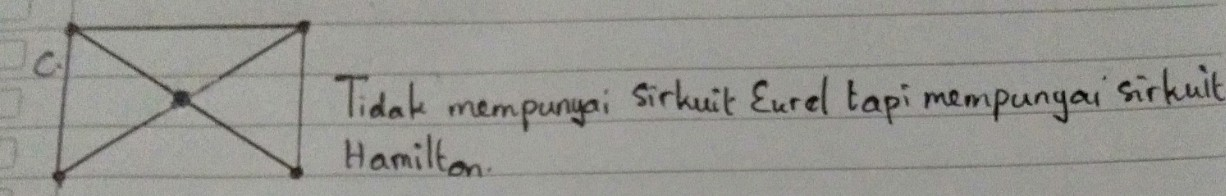 C.
Tidak mempunyai Sirkuit Eurel tapi mempunyai sirkuit
Hamilton.